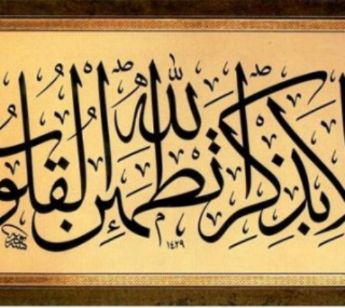 لا بِذِكْرِ اللهِ تَطْمَئِنُّ القُلُو
١٤٢٩